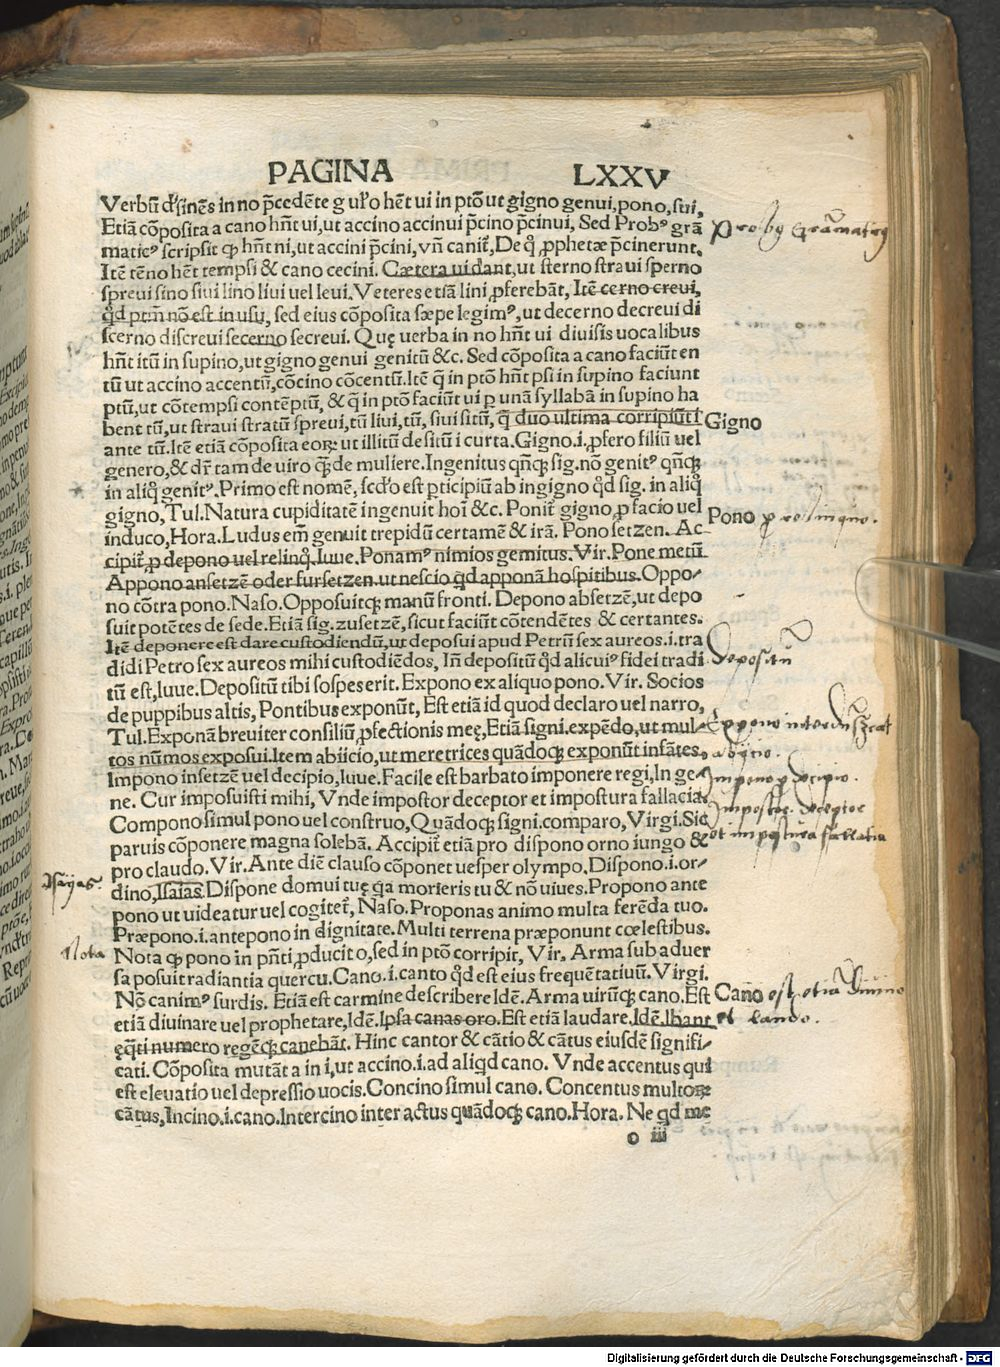 PAGINA LXXV
Verbū dſinēs in no p̄cedēte g uſo hēt ui in ptō ut gigno genui, pono, ſiui,
Etiā cōpoſita a cano hn̄t ui, ut accino accinui p̄cino p̄cinui, Sed Probꝰ grā
maticꝰ ſcripſit ꝙ hn̄t ni, ut accini p̄cini, vn̄ canit̄, De q̄ ꝓphetæ p̄cinerunt.
Itē tēno hēt tempſi & cano cecini. Cætera ui dant, ut ſterno ſtraui ſperno
ſpreui ſino ſiui lino liui uel leui. Veteres etiā lini ꝓferebāt, Itē cerno creui,
qd̄ ptm̄ nō eſt in uſu, ſed eius cōpoſita ſæpe legimꝰ, ut decerno decreui di
ſcerno diſcreui ſecerno ſecreui. Quę uerba in no hn̄t ui diuiſis uocalibus
hn̄t itū in ſupino, ut gigno genui genitū &c. Sed cōpoſita a cano faciūt en
tū ut accino accentū, cōcino cōcentū. Itē q̄ in ptō hn̄t pſi in ſupino faciunt
ptū, ut cōtempſi contēptū, & q̄ in ptō faciūt ui p unā ſyllabā in ſupino ha
bent tū, ut ſtraui ſtratū ſpreui, tū liui, tū, ſiui ſitū, q̄ duo ultima corripiūt i
ante tū. Itē etiā cōpoſita eoꝝ ut illitū deſitū i curta. Gigno .i. ꝓfero filiū uel
genero, & dr̄ tam de uiro q̄ꝫ de muliere. Ingenitus qn̄qꝫ ſig. nō genitꝰ qn̄qꝫ
in aliq̄ genitꝰ. Primo eſt nomē, ſcd̄o eſt pticipiū ab ingigno qd̄ ſig. in aliq̄
gigno, Tul. Natura cupiditatē ingenuit hoī &c. Ponit̄ gigno ꝓ facio uel
induco, Hora. Ludus em̄ genuit trepidū certamē & irā. Pono ſetzen. Ac-
cipit̄ ꝓ depono uel relinq̄. Iuue. Ponamꝰ nimios gemitus. Vir. Pone metū
Appono anſetzē oder furſetzen. ut neſcio qd̄ apponā hoſpitibus. Oppo-
no cōtra pono. Naſo. Oppoſuitqꝫ manū fronti. Depono abſetzē, ut depo
ſuit potētes de ſede. Etiā ſig. zuſetzē, ſicut faciūt cōtendētes & certantes.
Itē deponere eſt dare cuſtodiendū, ut depoſui apud Petrū ſex aureos .i. tra
didi Petro ſex aureos mihi cuſtodiēdos, In̄ depoſitū qd̄ alicuiꝰ fidei tradi
tū eſt, Iuue. Depoſitū tibi ſoſpes erit. Expono ex aliquo pono. Vir. Socios
de puppibus altis, Pontibus exponūt, Eſt etiā id quod declaro uel narro,
Tul. Exponā breuiter conſiliū, ꝓfectionis meę, Etiā ſigni. expēdo, ut mul-
tos nūmos expoſui. Item abiicio, ut meretrices quādoqꝫ exponūt infātes,
Impono inſetzē uel decipio, Iuue. Facile eſt barbato imponere regi, In ge
ne. Cur impoſuiſti mihi, Vnde impoſtor deceptor et impoſtura fallacia.
Compono ſimul pono uel conſtruo, Quādoqꝫ ſigni. comparo, Virgi. Sic
paruis cōponere magna ſolebā. Accipit̄ etiā pro diſpono orno iungo &
pro claudo. Vir. Ante diē clauſo cōponet ueſper olympo. Diſpono .i. or-
dino, Iſaias. Diſpone domui tuę q̄a morieris tu & nō uiues. Propono ante
pono ut uideatur uel cogitet̄, Naſo. Proponas animo multa ferēda tuo.
Præpono .i. antepono in dignitate. Multi terrena præponunt cœleſtibus.
Nota ꝙ pono in pn̄ti ꝓducit o, ſed in ptō corripit, Vir. Arma ſub aduer
ſa poſuit radiantia quercu. Cano .i. canto qd̄ eſt eius frequētatiuū. Virgi.
Nō canimꝰ ſurdis. Etiā eſt carmine deſcribere Idē. Arma uirūqꝫ cano. Eſt
etiā diuinare uel prophetare, Idē. Ipſa canas oro. Eſt etiā laudare, Idē. Ibant
ęq̄ti numero regēqꝫ canebāt. Hinc cantor & cātio & cātus eiuſdē ſignifi-
cati. Cōpoſita mutāt a in i, ut accino .i. ad aliqd cano. Vnde accentus qui
eſt eleuatio uel depreſſio uocis. Concino ſimul cano. Concentus multoꝝ
cātus, Incino .i. cano. Intercino inter actus quādoqꝫ cano. Hora. Ne qd me
o iii
Probꝰ Gramaticꝰ
Gigno
Pono ꝓ relinquo.
Depositū
Expono interdū
abijcio.
Impono ꝓ decipio.
Impostor deceptor
et impostura fallatia
Isayas.
Nota
Cano est etiā divino
et laudo.
Digitalisierung gefördert durch die Deutsche Forschungsgemeinschaft - DFG